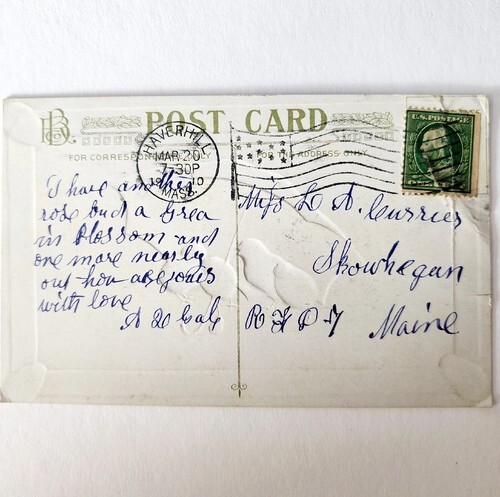 BB Co
POST CARD
FOR CORRESPONDENCE ONLY
FOR THE ADDRESS ONLY
HAVERHILL
MAR 20
7-30P
1910
MASS.
U.S. POSTAGE
I have another
rose bud a grea
in blossom and
one more nearly
out how are yours
with love
A D Gale
Miss L A. Currier
Skowhegan
R F D 7
Maine